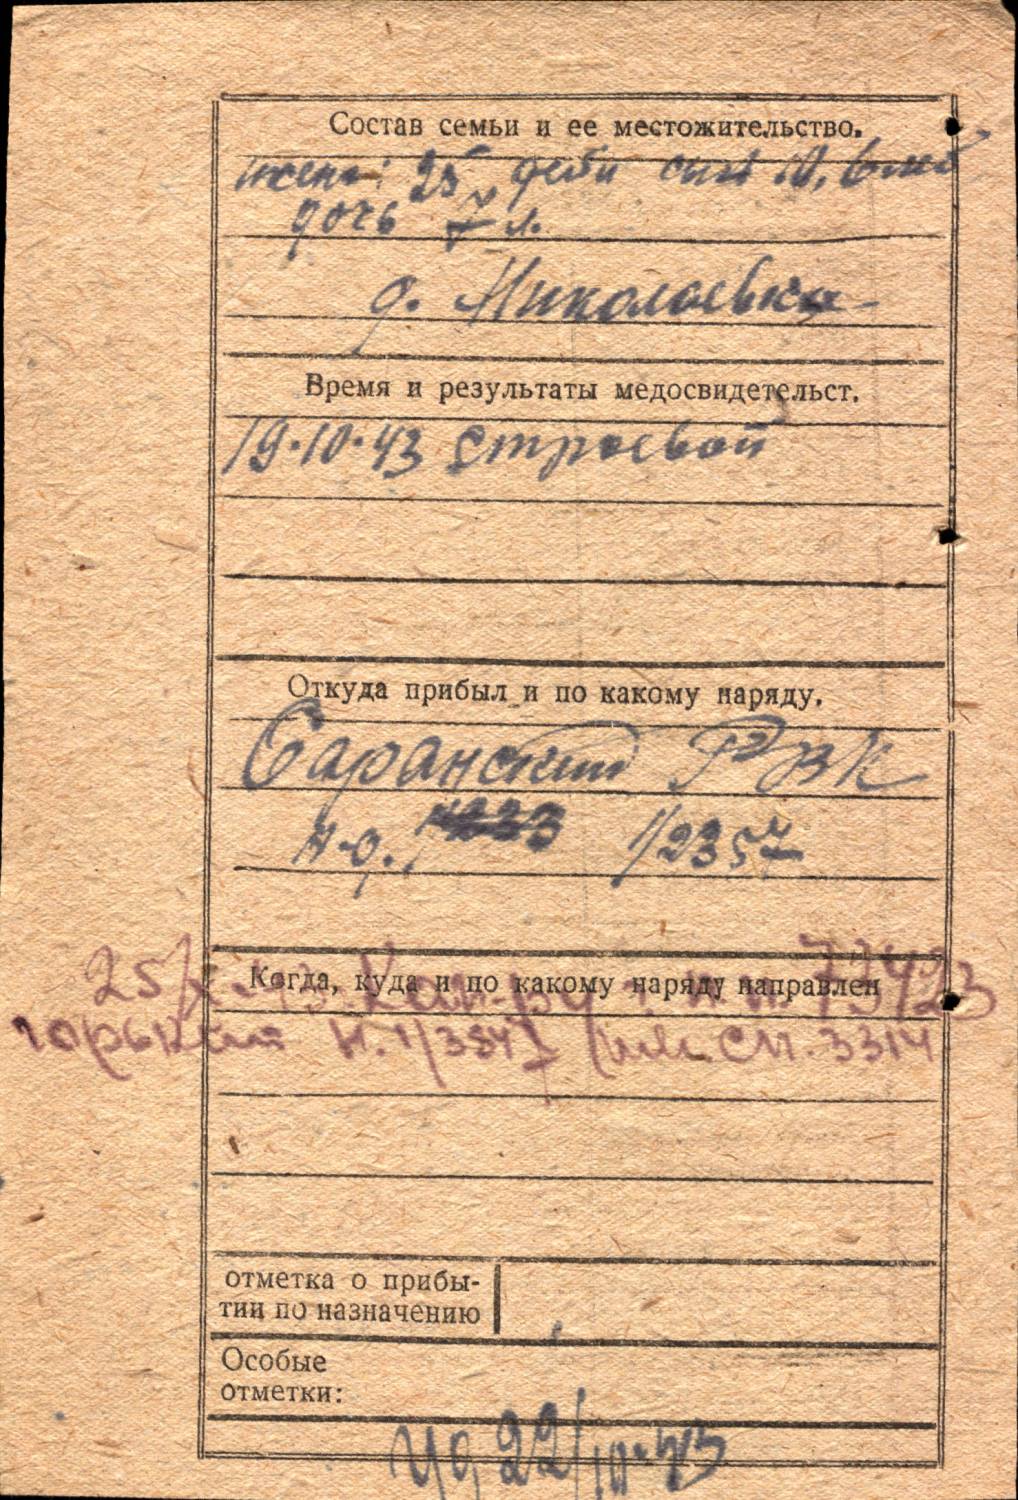 Состав семьи и ее местожительство.
жена: 25 дети сын
дочь 7 л.
д. Николаевка
Время и результаты медосвидетельст.
19.10.43 строевой
Откуда прибыл и по какому наряду.
Саранский РВК
н-д. 1/2357
Когда, куда и по какому наряду направлен
25/X-43 п 73423
Горький н. 1/3847 см. 3314
отметка о прибы-
тии по назначению
Особые
отметки:
22/10-43